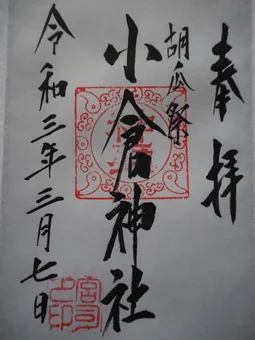 奉拝
胡瓜祭
小倉神社
令和三年三月七日